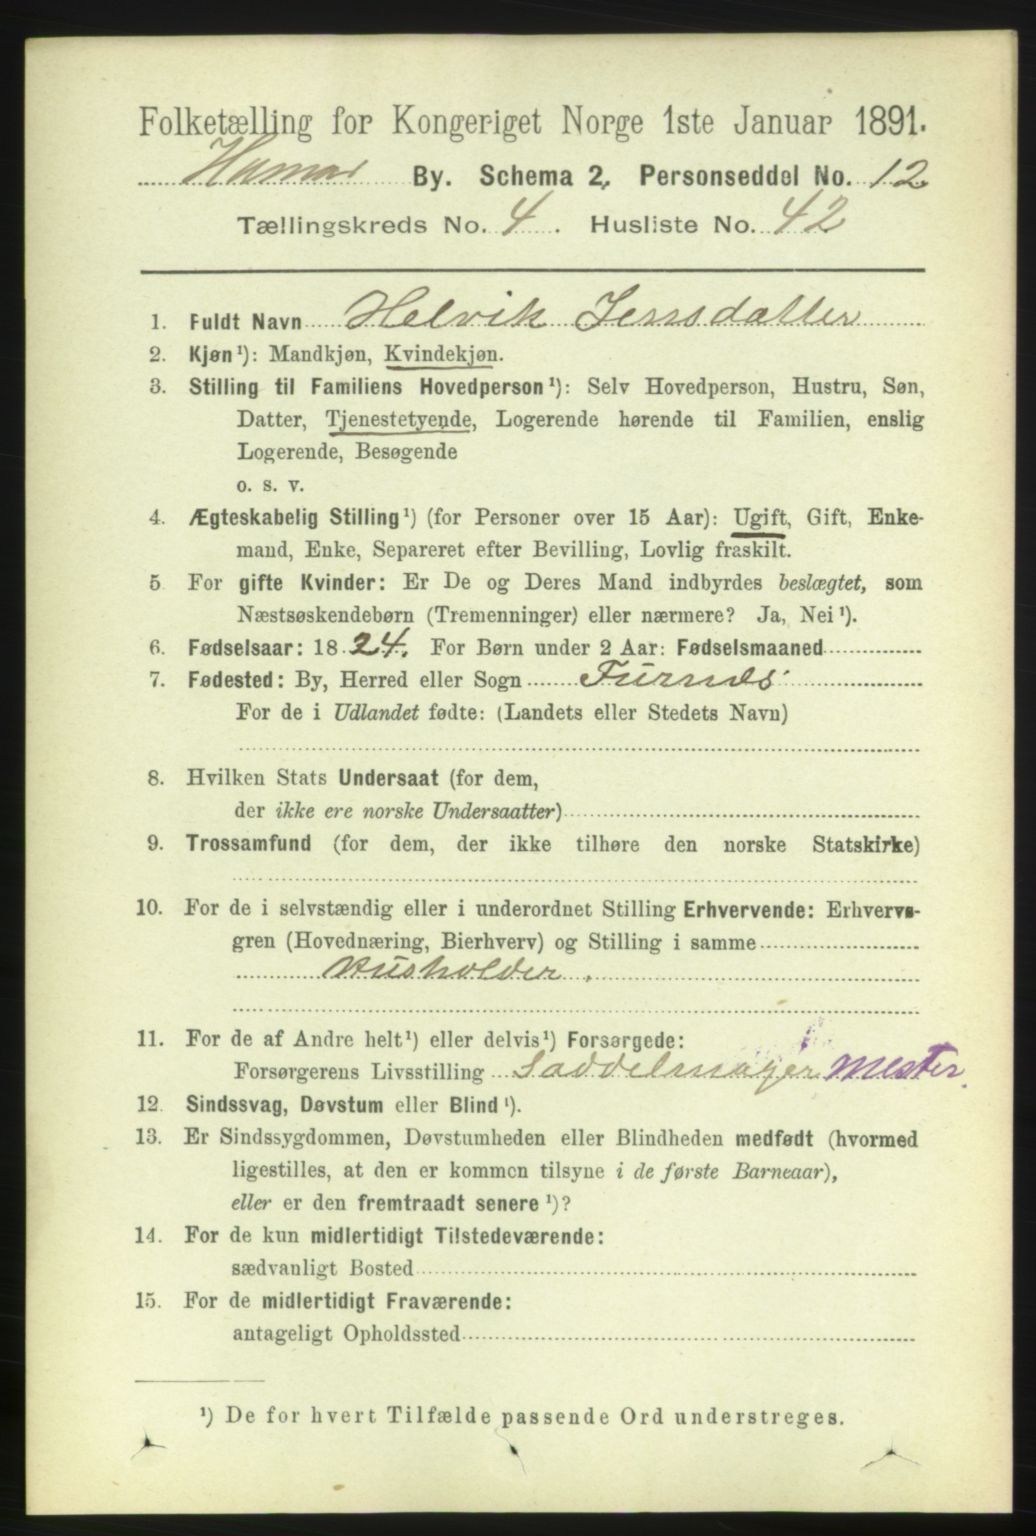 Folketælling for Kongeriget Norge 1ste Januar 1891.
Hamar By. Schema 2. Personseddel No. 12
Tællingskreds No. 4. Husliste No. 42
1. Fuldt Navn Helvik Jensdatter
2. Kjøn ¹): Mandkjøn, Kvindekjøn.
3. Stilling til Familiens Hovedperson ¹): Selv Hovedperson, Hustru, Søn,
Datter, Tjenestetyende, Logerende hørende til Familien, enslig
Logerende, Besøgende
o. s. v.
4. Ægteskabelig Stilling ¹) (for Personer over 15 Aar): Ugift, Gift, Enke-
mand, Enke, Separeret efter Bevilling, Lovlig fraskilt.
5 For gifte Kvinder: Er De og Deres Mand indbyrdes beslægtet, som
Næstsøskendebørn (Tremenninger) eller nærmere? Ja, Nei ¹).
6. Fødselsaar: 1824. For Børn under 2 Aar: Fødselsmaaned
7. Fødested: By, Herred eller Sogn Furnæs
For de i Udlandet fødte: (Landets eller Stedets Navn)
8. Hvilken Stats Undersaat (for dem,
der ikke ere norske Undersaatter)
9. Trossamfund (for dem, der ikke tilhøre den norske Statskirke)
10. For de i selvstændig eller i underordnet Stilling Erhvervende: Erhvervs-
gren (Hovednæring, Bierhverv) og Stilling i samme
Husholder.
11. For de af Andre helt ¹) eller delvis ¹) Forsørgede:
Forsørgerens Livsstilling Saddelmager mester.
12. Sindssvag, Døvstum eller Blind ¹).
13. Er Sindssygdommen, Døvstumheden eller Blindheden medfødt (hvormed
ligestilles, at den er kommen tilsyne i de første Barneaar),
eller er den fremtraadt senere ¹)?
14. For de kun midlertidigt Tilstedeværende:
sædvanligt Bosted
15. For de midlertidigt Fraværende:
antageligt Opholdssted
¹) De for hvert Tilfælde passende Ord understreges.